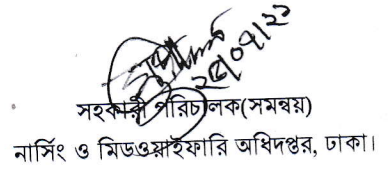 সহকারী পরিচালক(সমন্বয়)
নার্সিং ও মিডওয়াইফারি অধিদপ্তর, ঢাকা।